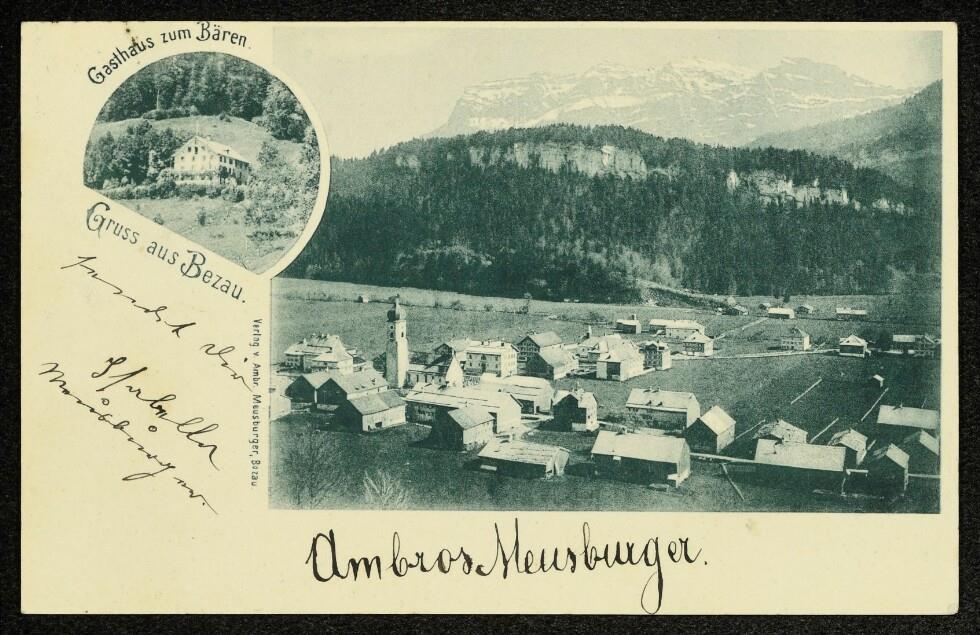 Gasthaus zum Bären.
Gruss aus Bezau.
sendet dir
Verlag v. Ambr. Meusburger, Bezau
Ambros Meusburger.